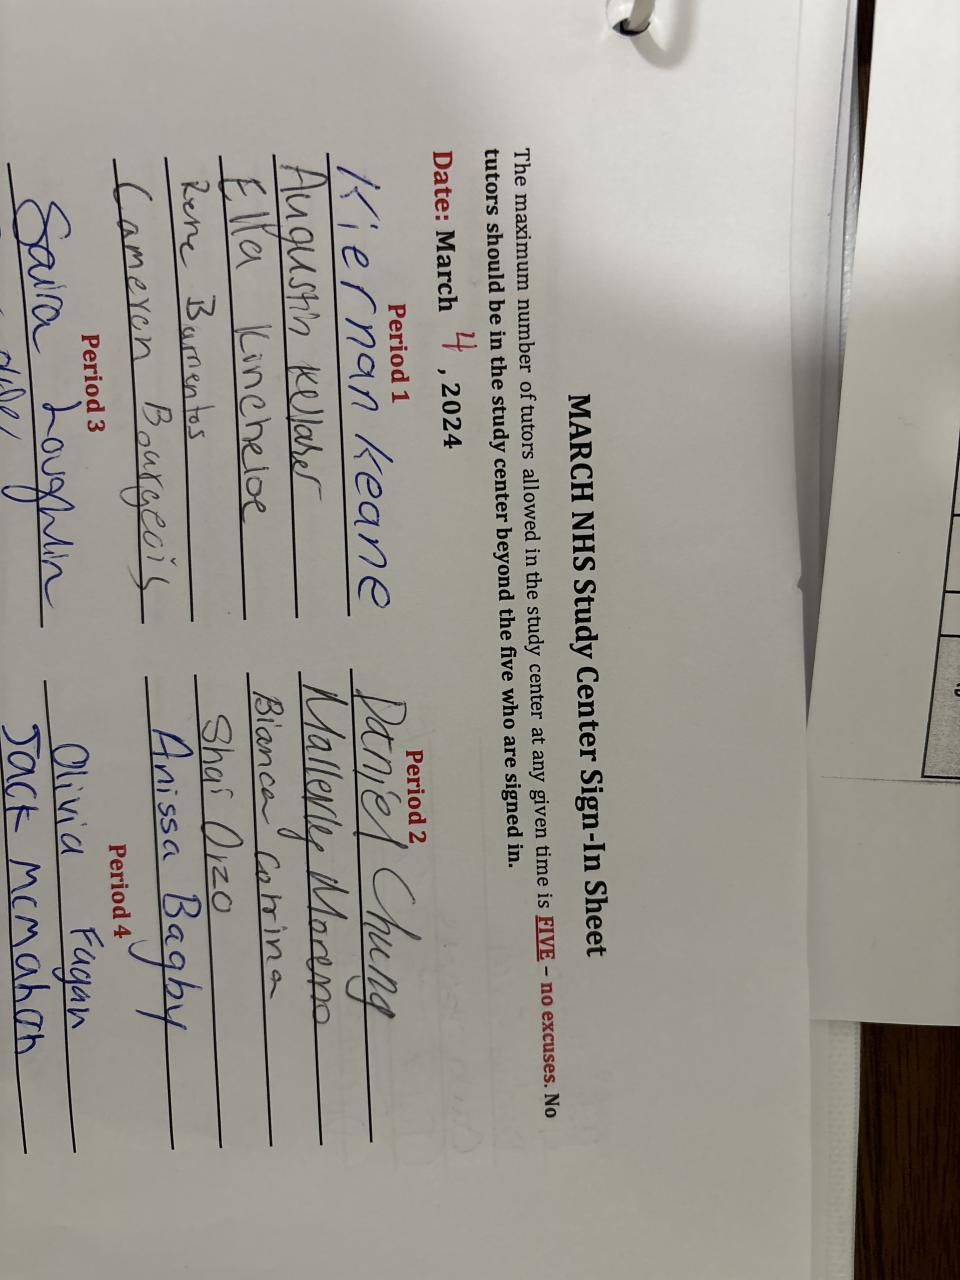 MARCH NHS Study Center Sign-In Sheet
The maximum number of tutors allowed in the study center at any given time is FIVE – no excuses. No
tutors should be in the study center beyond the five who are signed in.
Date: March 4, 2024
Period 1
Kiernan Keane
Augustin Kellaher
Ella Kincheloe
Rene Barrientos
Cameron Bourgeois
Period 2
Daniel Chung
Mallerly Moreno
Bianca Cotrina
Shai Orzo
Anissa Bagby
Period 3
Saira Loughlin
Period 4
Olivia Fagan
Jack McMahon